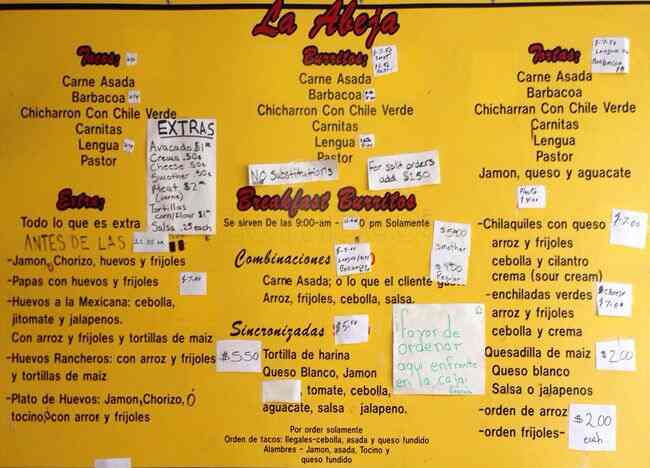 La Abeja
Tacos:
Carne Asada
Barbacoa
Chicharron Con Chile Verde
Carnitas
Lengua
Pastor
Burritos:
Carne Asada
Barbacoa
Chicharron Con Chile Verde
Carnitas
Lengua
Pastor
Tortas:
$7.50
Lengua
Barbacoa
Carne Asada
Barbacoa
Chicharran Con Chile Verde
Carnitas
Lengua
Pastor
Jamon, queso y aguacate
EXTRAS
Avacado $1
Crema .50¢
Cheese .50¢
Smother .50¢
Meat $2
(carne)
Tortillas
corn/flour $1
Salsa .25 each
NO Substitutions
For split orders
add $1.50
Extra:
Todo lo que es extra
ANTES DE LAS
-Jamon, Chorizo, huevos y frijoles
-Papas con huevos y frijoles
$7.00
-Huevos a la Mexicana: cebolla,
jitomate y jalapenos.
Con arroz y frijoles y tortillas de maiz
-Huevos Rancheros: con arroz y frijoles
y tortillas de maiz
$5.50
-Plato de Huevos: Jamon, Chorizo, Ó
tocino, con arroz y frijoles
Breakfast Burritos
Se sirven De las 9:00-am - pm Solamente
Smother
Regular
Combinaciones
Carne Asada; o lo que el cliente
Arroz, frijoles, cebolla, salsa.
Sincronizadas
Tortilla de harina
Queso Blanco, Jamon
, tomate, cebolla,
aguacate, salsa jalapeno.
¡favor de
ordenar
aqui enfrente
en la caja!
Por order solamente
Orden de tacos: Ilegales-cebolla, asada y queso fundido
Alambres - Jamon, asada, Tocino y
queso fundido
-Chilaquiles con queso
$7.00
arroz y frijoles
cebolla y cilantro
crema (sour cream)
-enchiladas verdes
cheese
$7.00
arroz y frijoles
cebolla y crema
Quesadilla de maiz
$2.00
Queso blanco
Salsa o jalapenos
-orden de arroz
-orden frijoles-
$2.00
each